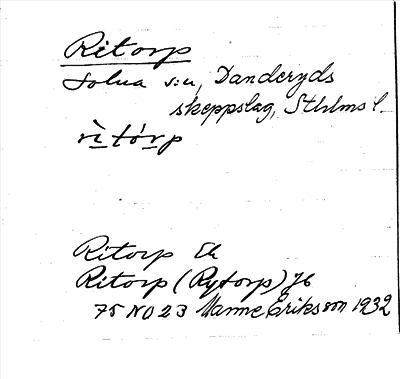 Ritorp
Solna s:n, Danderyds
skeppslag, Sthlms l.
rìtórp
Ritorp Ek
Ritorp (Rytorp) Jb
75 NO 23 Manne Eriksson 1932